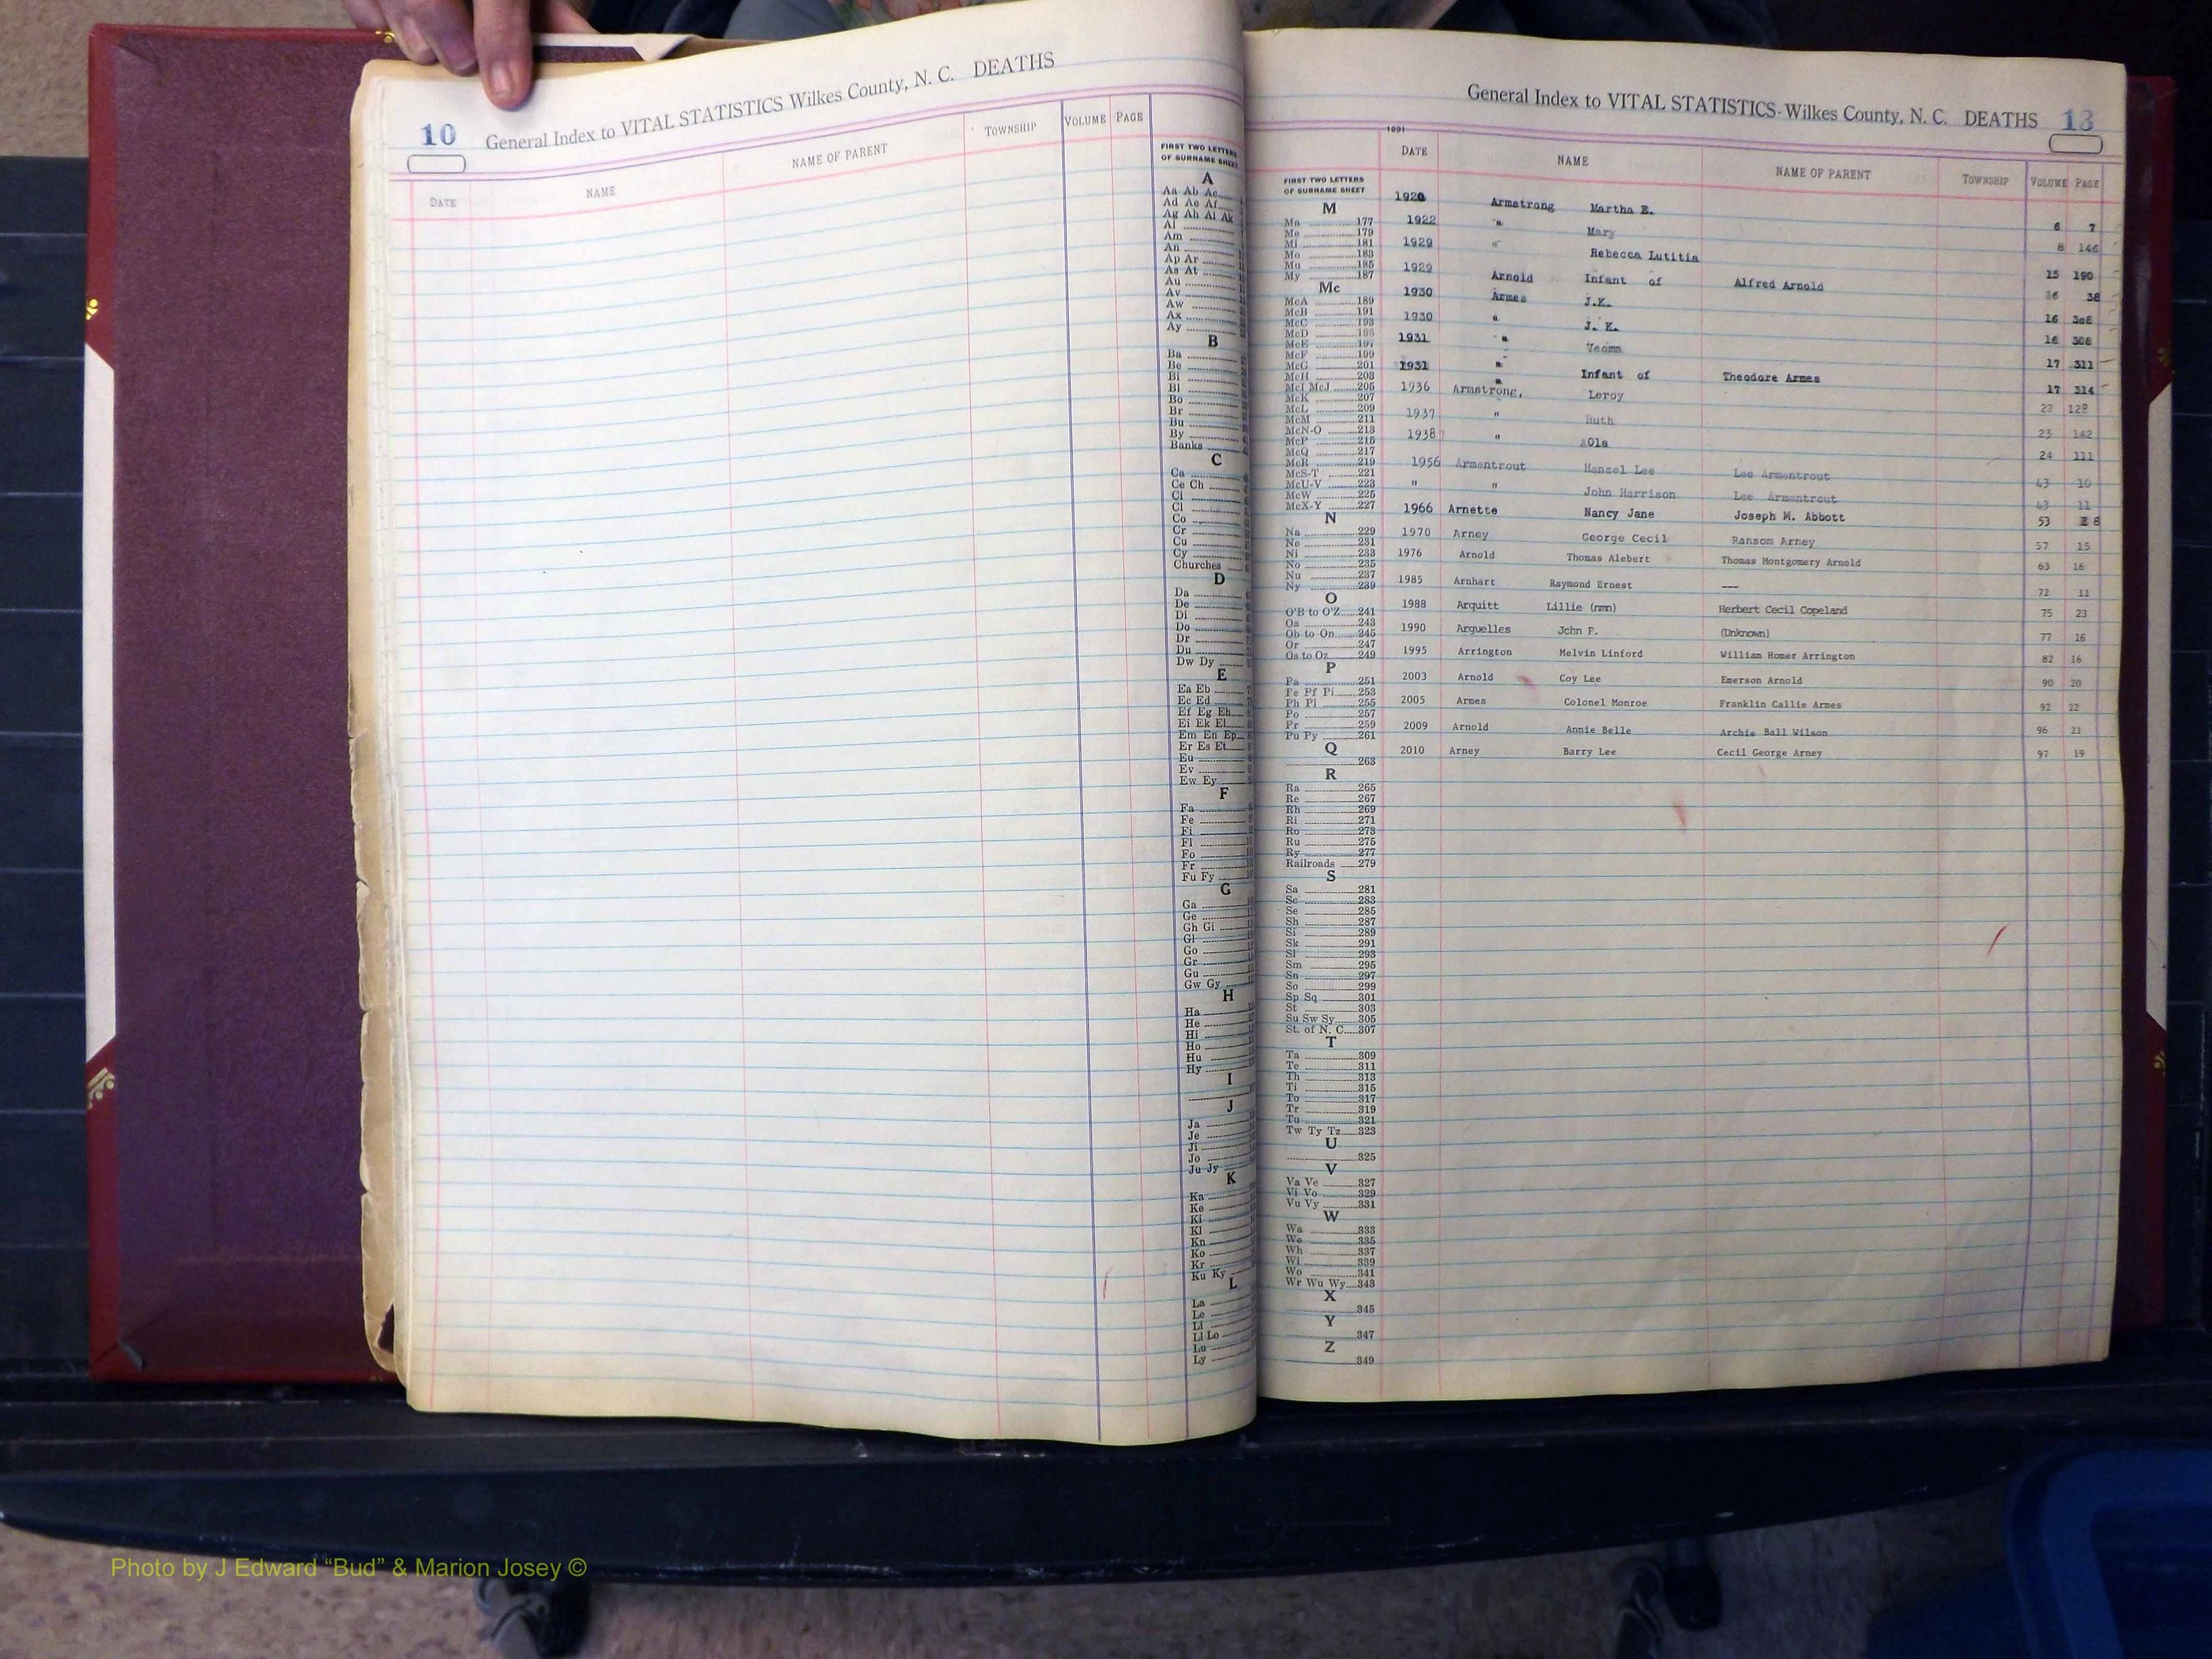 10
General Index to VITAL STATISTICS Wilkes County, N. C. DEATHS
DATE NAME NAME OF PARENT TOWNSHIP VOLUME PAGE
FIRST TWO LETTERS
OF SURNAME SHEET
A
Aa Ab Ac
Ad Ae Af
Ag Ah Ai Ak
Al
Am
An
Ap Ar
As At
Au
Av
Aw
Ax
Ay
B
Ba
Be
Bi
Bl
Bo
Br
Bu
By
Banks
C
Ca
Ce Ch
Ci
Cl
Co
Cr
Cu
Cy
Churches
D
Da
De
Di
Do
Dr
Du
Dw Dy
E
Ea Eb
Ec Ed
Ef Eg Eh
Ei Ek El
Em En Ep
Er Es Et
Eu
Ev
Ew Ey
F
Fa
Fe
Fi
Fl
Fo
Fr
Fu Fy
G
Ga
Ge
Gh Gi
Gl
Go
Gr
Gu
Gw Gy
H
Ha
He
Hi
Ho
Hu
Hy
I
J
Ja
Je
Ji
Jo
Ju Jy
K
Ka
Ke
Ki
Kl
Kn
Ko
Kr
Ku Ky
L
La
Le
Li
Ll Lo
Lu
Ly
General Index to VITAL STATISTICS-Wilkes County, N. C. DEATHS 13
1891
DATE NAME NAME OF PARENT TOWNSHIP VOLUME PAGE
FIRST TWO LETTERS
OF SURNAME SHEET
M
Ma 177
Me 179
Mi 181
Mo 183
Mu 185
My 187
Mc
McA 189
McB 191
McC 193
McD 195
McE 197
McF 199
McG 201
McH 203
McI McJ 205
McK 207
McL 209
McM 211
McN-O 213
McP 215
McQ 217
McR 219
McS-T 221
McU-V 223
McW 225
McX-Y 227
N
Na 229
Ne 231
Ni 233
No 235
Nu 237
Ny 239
O
O'B to O'Z 241
Oa 243
Ob to On 245
Or 247
Os to Oz 249
P
Pa 251
Pe Pf Pi 253
Ph Pl 255
Po 257
Pr 259
Pu Py 261
Q
263
R
Ra 265
Re 267
Rh 269
Ri 271
Ro 273
Ru 275
Ry 277
Railroads 279
S
Sa 281
Sc 283
Se 285
Sh 287
Si 289
Sk 291
Sl 293
Sm 295
Sn 297
So 299
Sp Sq 301
St 303
Su Sw Sy 305
St. of N. C. 307
T
Ta 309
Te 311
Th 313
Ti 315
To 317
Tr 319
Tu 321
Tw Ty Tz 323
U
325
V
Va Ve 327
Vi Vo 329
Vu Vy 331
W
Wa 333
We 335
Wh 337
Wi 339
Wo 341
Wr Wu Wy 343
X
345
Y
347
Z
349
1920 Armstrong Martha E. 6 7
1922 " Mary 8 146
1929 " Rebecca Lutitia 15 190
1929 Arnold Infant of Alfred Arnold 16 38
1930 Armes J.K. 16 308
1930 " J. K. 16 308
1931 " 17 311
1931 " Infant of Theodore Armes 17 314
1936 Armstrong, Leroy 22 128
1937 " Ruth 23 142
1938 " Ola 24 111
1956 Armentrout Hansel Lee Lee Armentrout 43 10
" " John Harrison Lee Armentrout 43 11
1966 Arnette Nancy Jane Joseph M. Abbott 53 8
1970 Arney George Cecil Ransom Arney 57 15
1976 Arnold Thomas Alebert Thomas Montgomery Arnold 63 16
1985 Arnhart Raymond Ernest --- 72 11
1988 Arquitt Lillie (nmn) Herbert Cecil Copeland 75 23
1990 Arguelles John P. (Unknown) 77 16
1995 Arrington Melvin Linford William Homer Arrington 82 16
2003 Arnold Coy Lee Emerson Arnold 90 20
2005 Armes Colonel Monroe Franklin Callie Armes 92 22
2009 Arnold Annie Belle Archie Ball Wilson 96 21
2010 Arney Barry Lee Cecil George Arney 97 19
Photo by J Edward “Bud” & Marion Josey ©